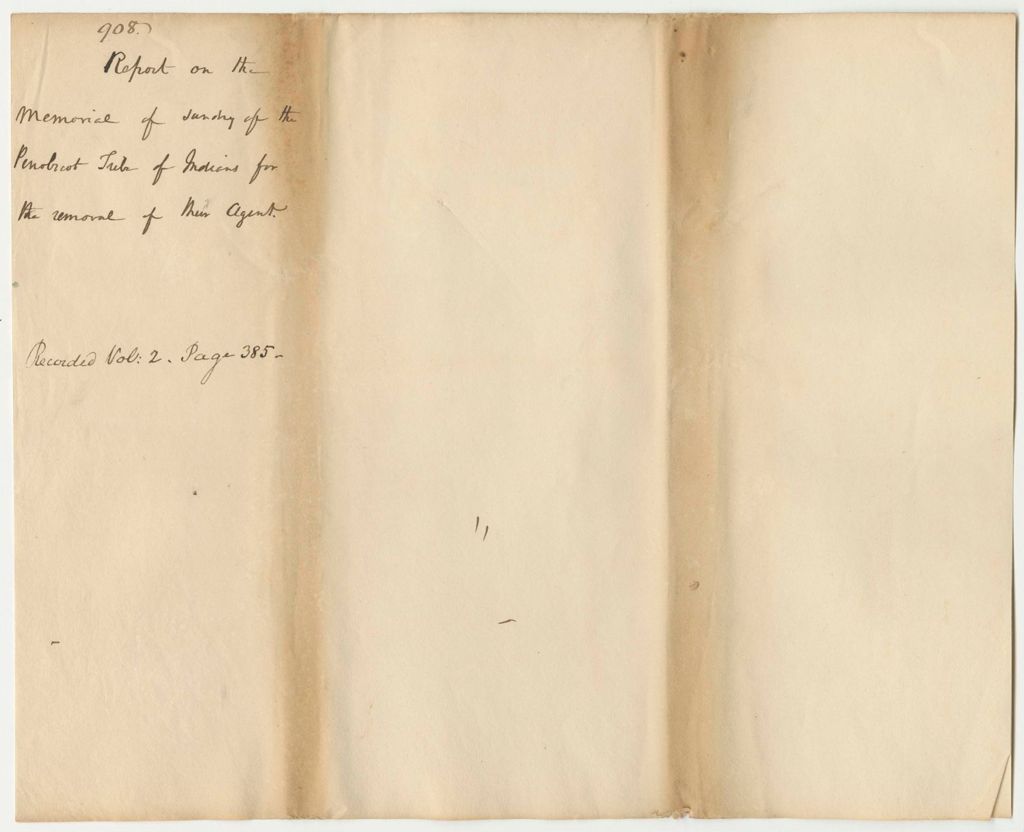 908.
Report on the
Memorial of sundry of the
Penobscot Tribe of Indians for
the removal of their Agent.
Recorded Vol: 2. Page 385-